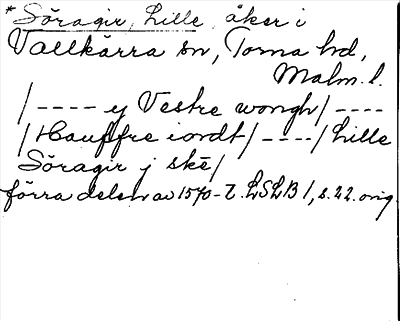 *Söragir, Lille, åker i
Vallkärra sn, Torna hd,
Malm. l.
/---- ej Vestre wongh/----
/Hauffre iordt/----/Lille
Söragir j skē/
förra delen av 1570-t. LSLB 1, s. 22. orig.